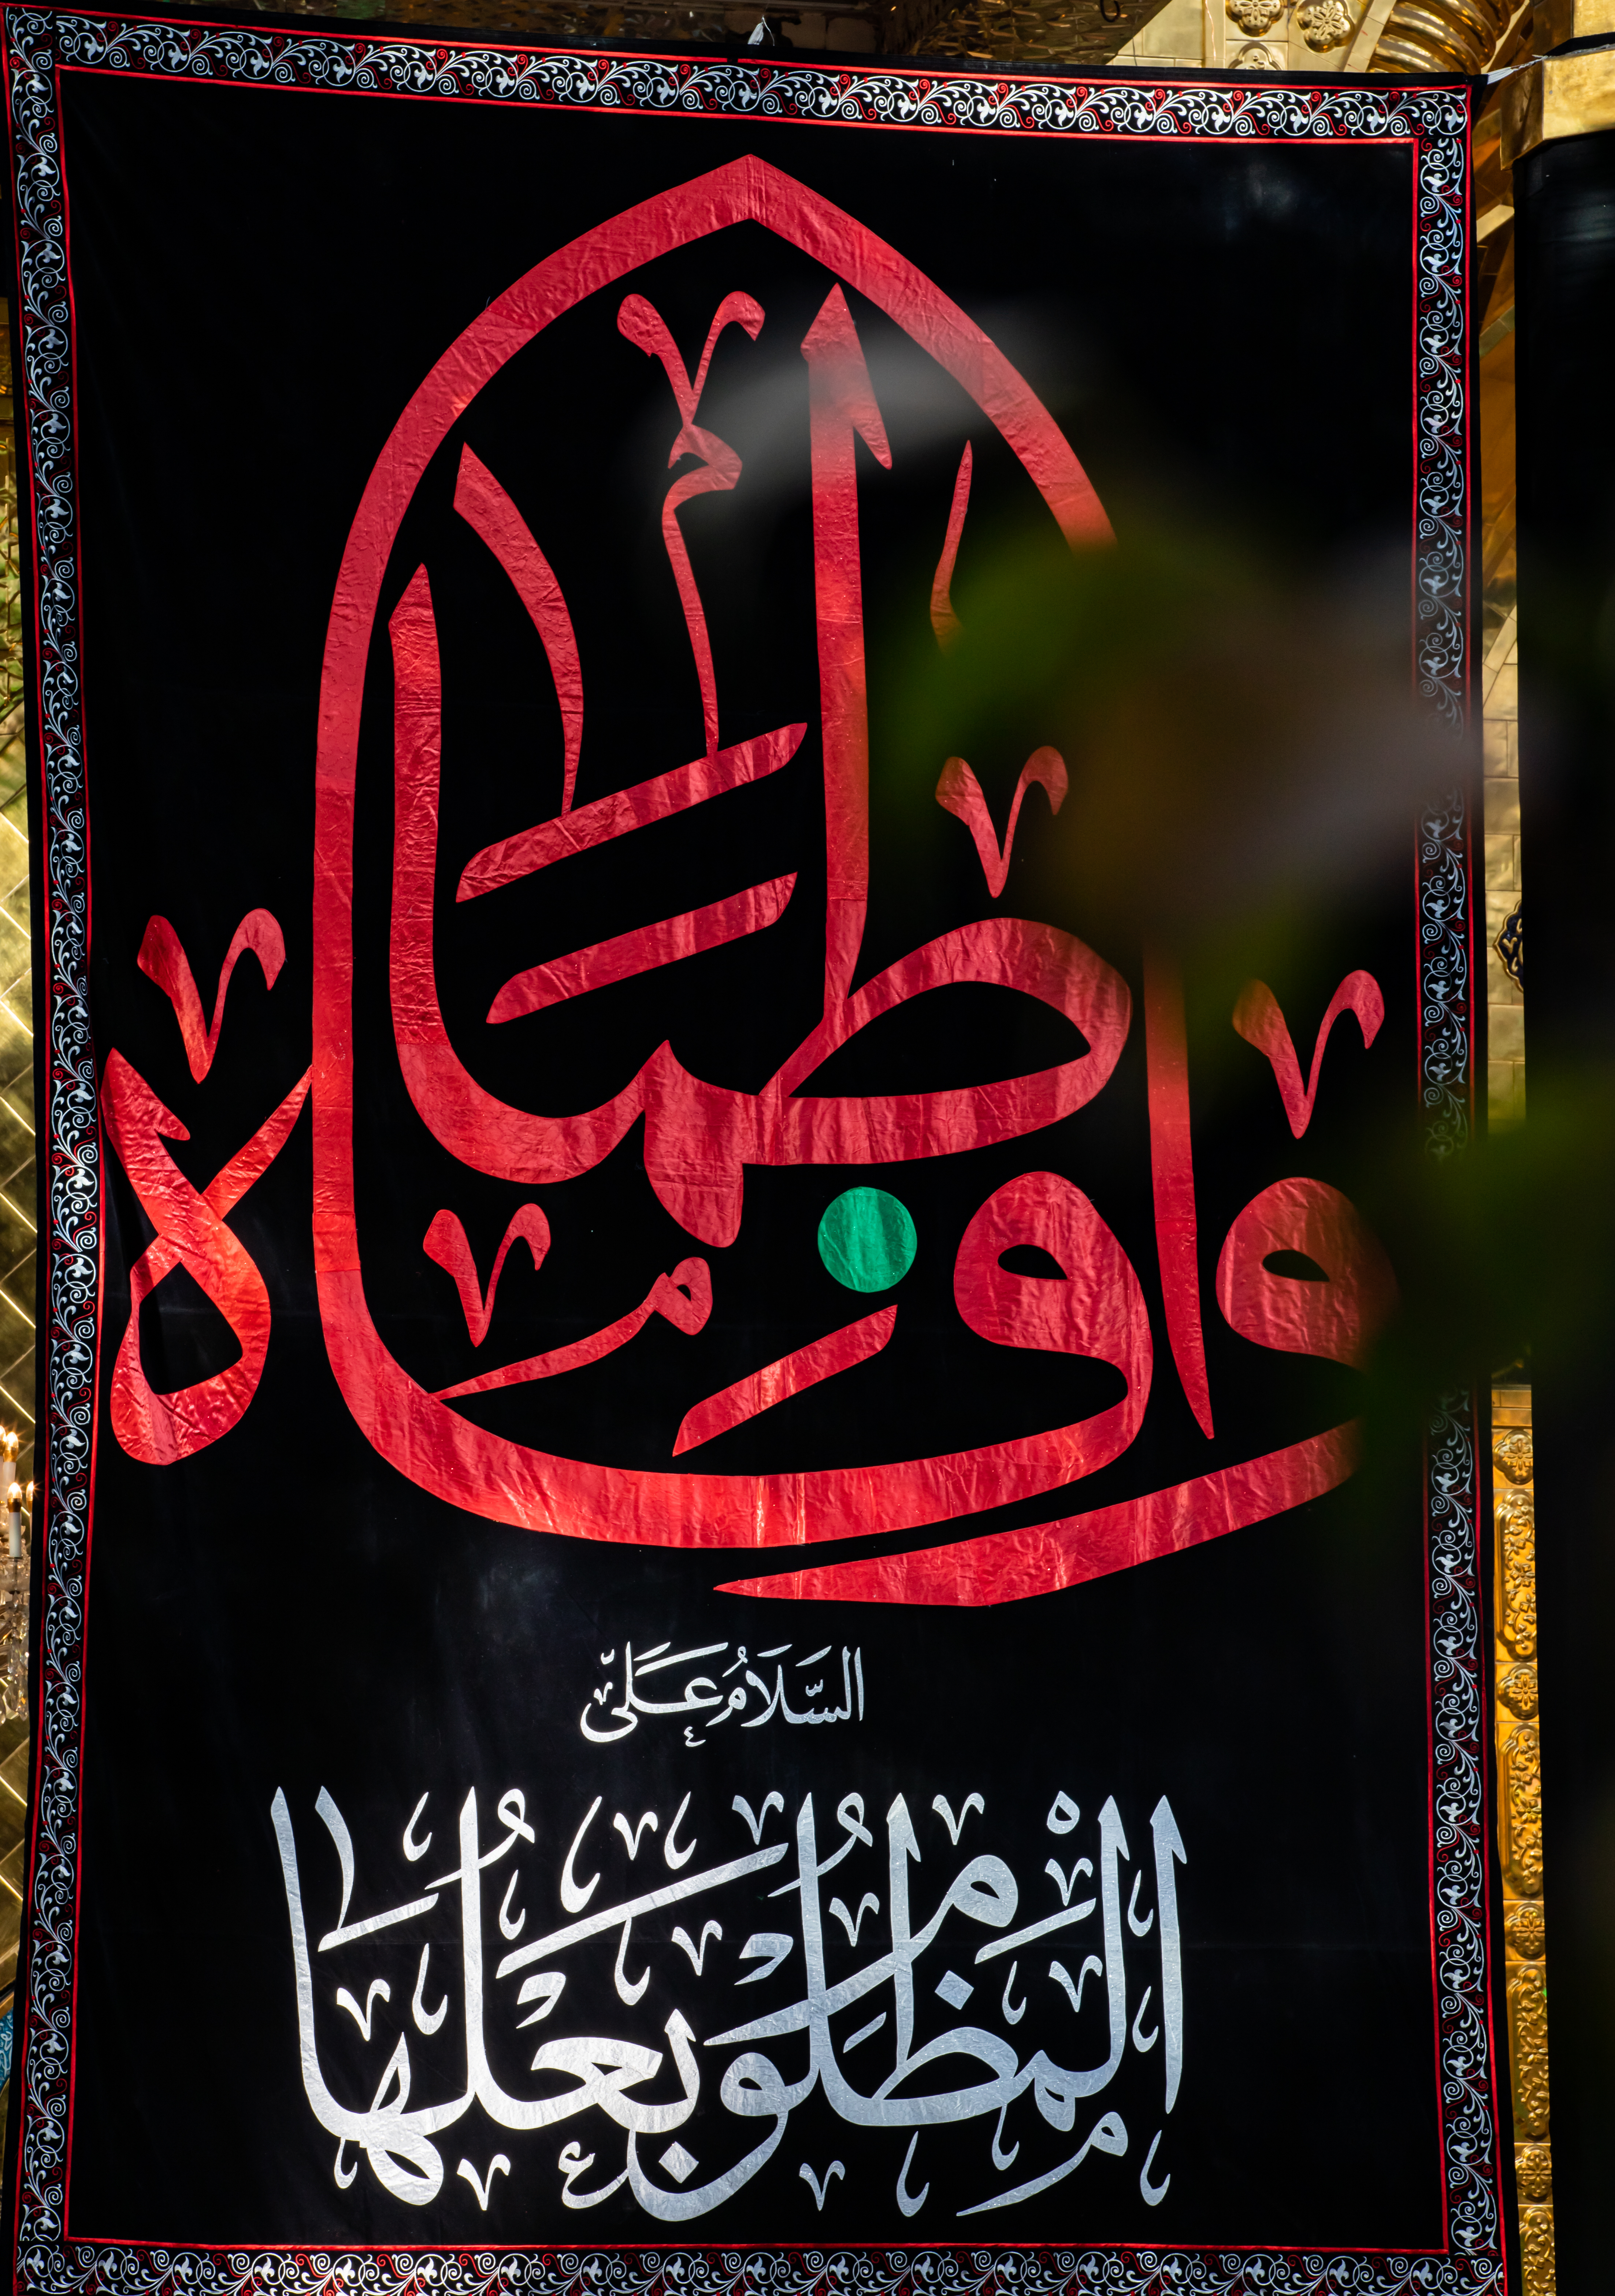 وا فاطماه
السَّلَامُ عَلَى
المظلوم بعلها